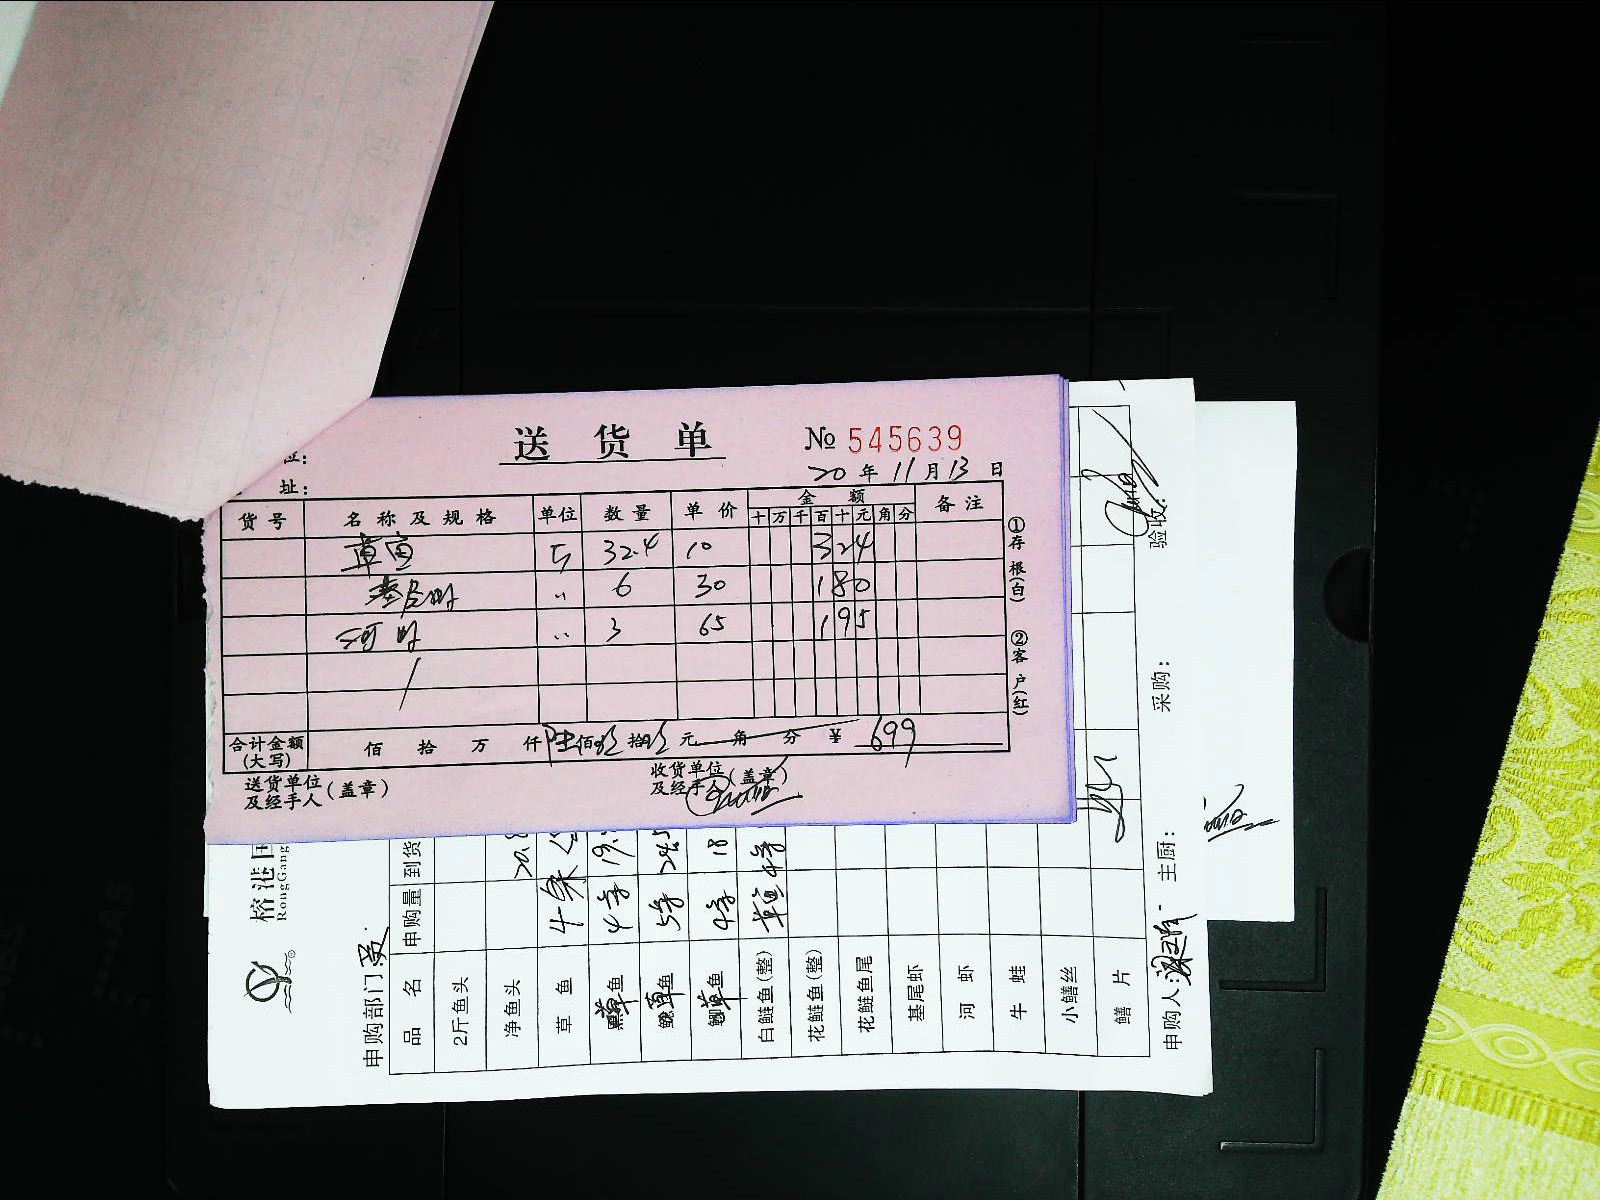 送货单 № 545639
20 年 11 月 13 日
址：
货号 名称及规格 单位 数量 单价 金额 备注
十 万 千 百 十 元 角 分
草鱼 斤 32.4 10 324
基尾虾 〃 6 30 180
河虾 〃 3 65 195
合计金额(大写) 佰 拾 万 仟 陆 佰 玖 拾 玖 元 角 分 ¥ 699
送货单位及经手人(盖章) 收货单位及经手人(盖章)
①存根(白) ②客户(红)
榕港
RongGang
申购部门：
品名 申购量 到货
2斤鱼头
净鱼头 20.8
草鱼 4条
草鱼 4条 19.
草鱼 5条 24.5
草鱼 4条 18
白鲢鱼(整) 草鱼 4条
花鲢鱼(整)
花鲢鱼尾
基尾虾
河虾
牛蛙
小鳝丝
鳝片
申购人： 主厨： 采购： 验收：